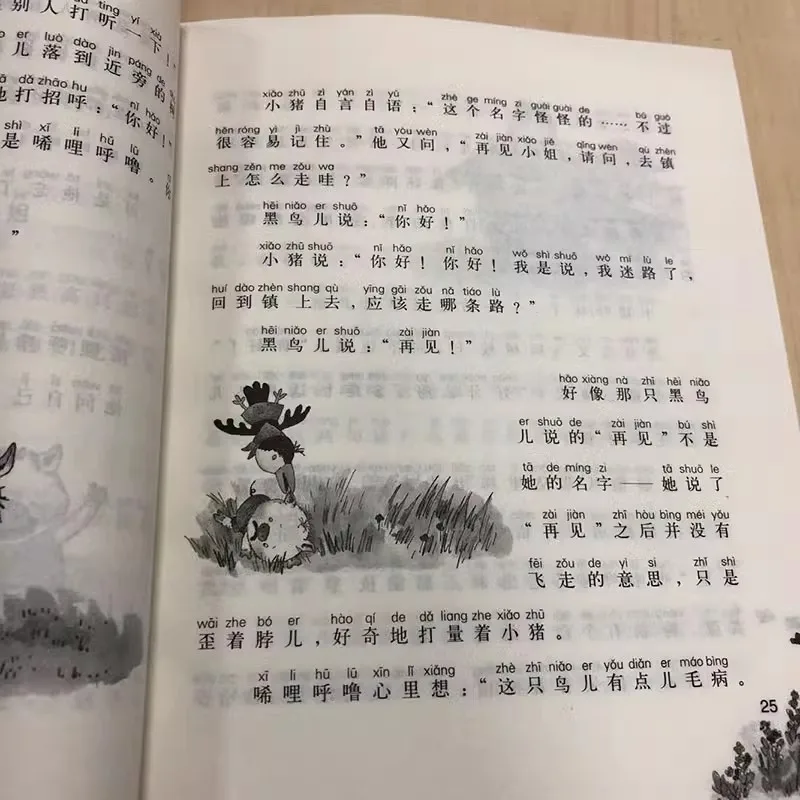 tīng yí xià
别人打听一下！”
er luò dào jìn páng de
儿落到近旁的
dǎ zhāo hu nǐ hǎo
地打招呼：“你好！
shì xī li hū lū
是唏哩呼噜。
”
xiǎo zhū zì yán zì yǔ zhè ge míng zi guài guài de bú guò
小猪自言自语：“这个名字怪怪的……不过
hěn róng yì jì zhù tā yòu wèn zài jiàn xiǎo jiě qǐng wèn qù zhèn
很容易记住。”他又问，“再见小姐，请问，去镇
shang zěn me zǒu wa
上怎么走哇？”
hēi niǎo er shuō nǐ hǎo
黑鸟儿说：“你好！”
xiǎo zhū shuō nǐ hǎo nǐ hǎo wǒ shì shuō wǒ mí lù le
小猪说：“你好！你好！我是说，我迷路了，
huí dào zhèn shang qù yīng gāi zǒu nǎ tiáo lù
回到镇上去，应该走哪条路？”
hēi niǎo er shuō zài jiàn
黑鸟儿说：“再见！”
hǎo xiàng nà zhī hēi niǎo
好像那只黑鸟
er shuō de zài jiàn bú shì
儿说的“再见”不是
tā de míng zi tā shuō le
她的名字——她说了
zài jiàn zhī hòu bìng méi yǒu
“再见”之后并没有
fēi zǒu de yì si zhǐ shì
飞走的意思，只是
wāi zhe bó er hào qí de dǎ liang zhe xiǎo zhū
歪着脖儿，好奇地打量着小猪。
xī li hū lū xīn lǐ xiǎng zhè zhī niǎo er yǒu diǎn er máo bìng
唏哩呼噜心里想：“这只鸟儿有点儿毛病。
25